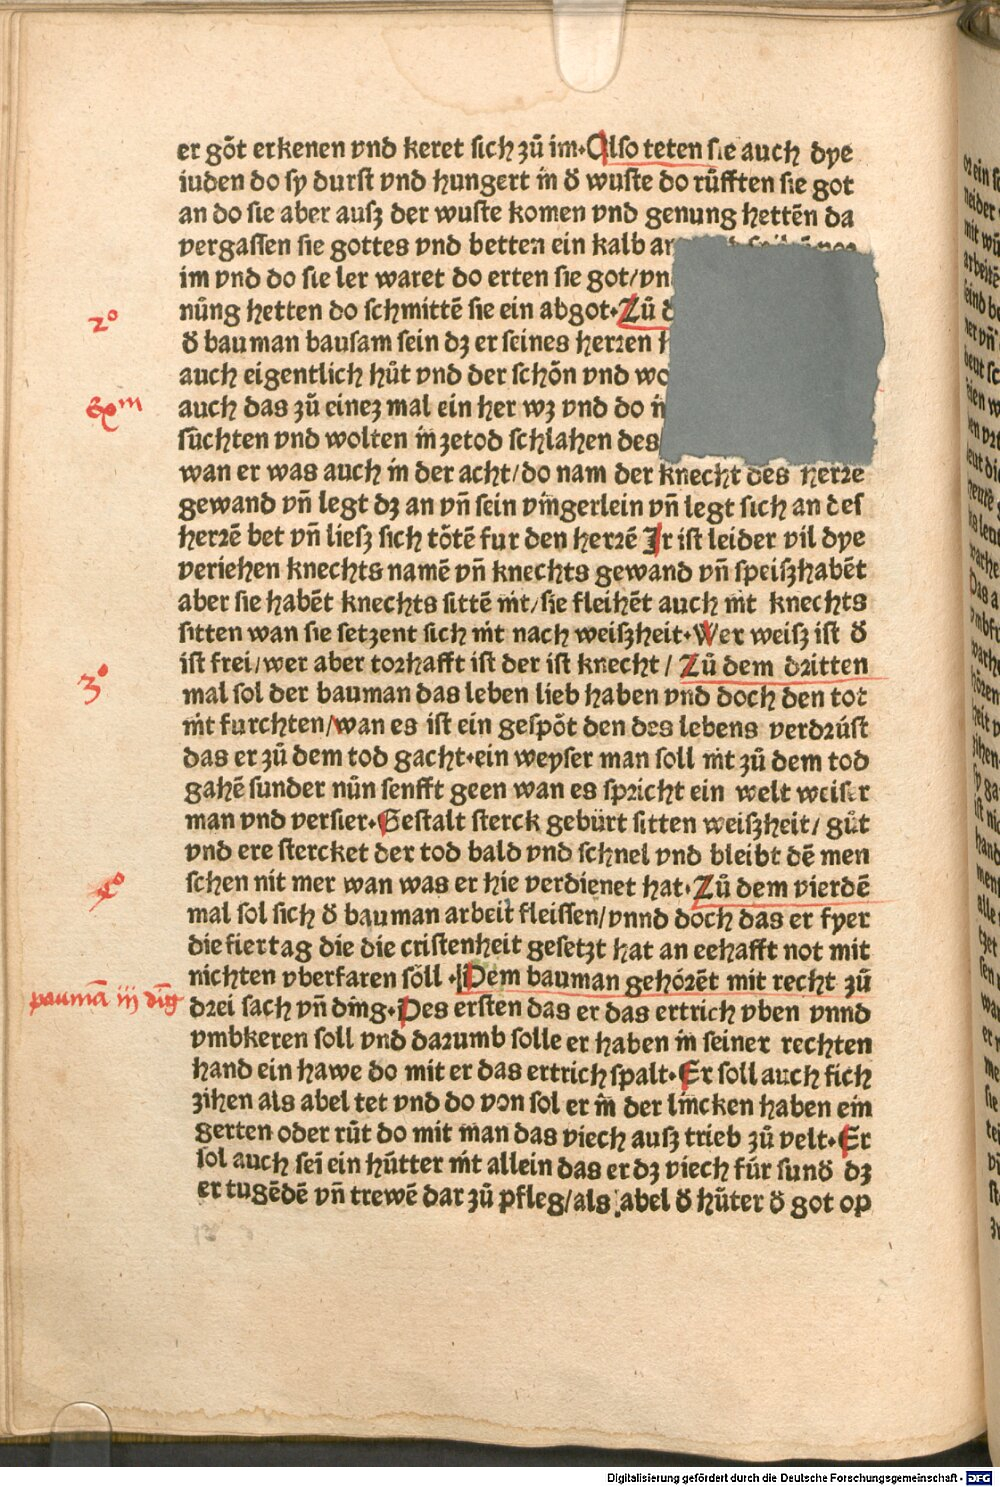 er gõt erkenen vnd keret sich zů im·Also teten sie auch dye
iuden do sy durst vnd hungert in ð wuste do růfften sie got
an do sie aber ausz der wuste komen vnd genung hettẽn da
vergassen sie gottes vnd betten ein kalb
im vnd do sie ler waret do erten sie got/
nůng hetten do schmittẽ sie ein abgot·Zů
2°
ð bauman bausam sein dz er seines herren
auch eigentlich hůt vnd der schõn vnd
auch das zů einez mal ein her wz vnd do
sůchten vnd wolten in zetod schlahen des
wan er was auch in der acht/do nam der knecht des herre
gewand vñ legt dz an vñ sein vingerlein vñ legt sich an des
herrẽ bet vñ liesz sich tõtẽ fur den herrẽ Ir ist leider vil dye
veriehen knechts namẽ vñ knechts gewand vñ speiszhabẽt
aber sie habẽt knechts sittẽ nit/sie fleihẽt auch nit knechts
sitten wan sie setzent sich nit nach weiszheit·Wer weisz ist ð
ist frei/wer aber torhafft ist der ist knecht/ Zů dem dritten
3°
mal sol der bauman das leben lieb haben vnd doch den tot
nit furchten/wan es ist ein gespõt den des lebens verdrúst
das er zů dem tod gacht·ein weyser man soll nit zů dem tod
gahẽ sunder nůn senfft geen wan es spricht ein welt weiser
man vnd versier·Gestalt sterck gebürt sitten weiszheit/ gůt
vnd ere stercket der tod bald vnd schnel vnd bleibt dẽ men
schen nit mer wan was er hie verdienet hat·Zů dem vierdẽ
4°
mal sol sich ð bauman arbeit fleissen/vnnd doch das er fyer
die fiertag die die cristenheit gesetzt hat an eehafft not mit
nichten vberfaren sõll·Dem bauman gehórẽt mit recht zů
paumã iij diĝ
drei sach vñ ding·Des ersten das er das ertrich vben vnnd
vmbkeren soll vnd darumb solle er haben in seiner rechten
hand ein hawe do mit er das ertrich spalt·Er soll auch fich
zihen als abel tet vnd do von sol er in der lincken haben ein
gerten oder růt do mit man das viech ausz trieb zů velt·Er
sol auch sei ein hůtter nit allein das er dz viech für sunð dz
er tugẽdẽ vñ trewẽ dar zů pfleg/als abel ð hůter ð got op
Digitalisierung gefördert durch die Deutsche Forschungsgemeinschaft - DFG